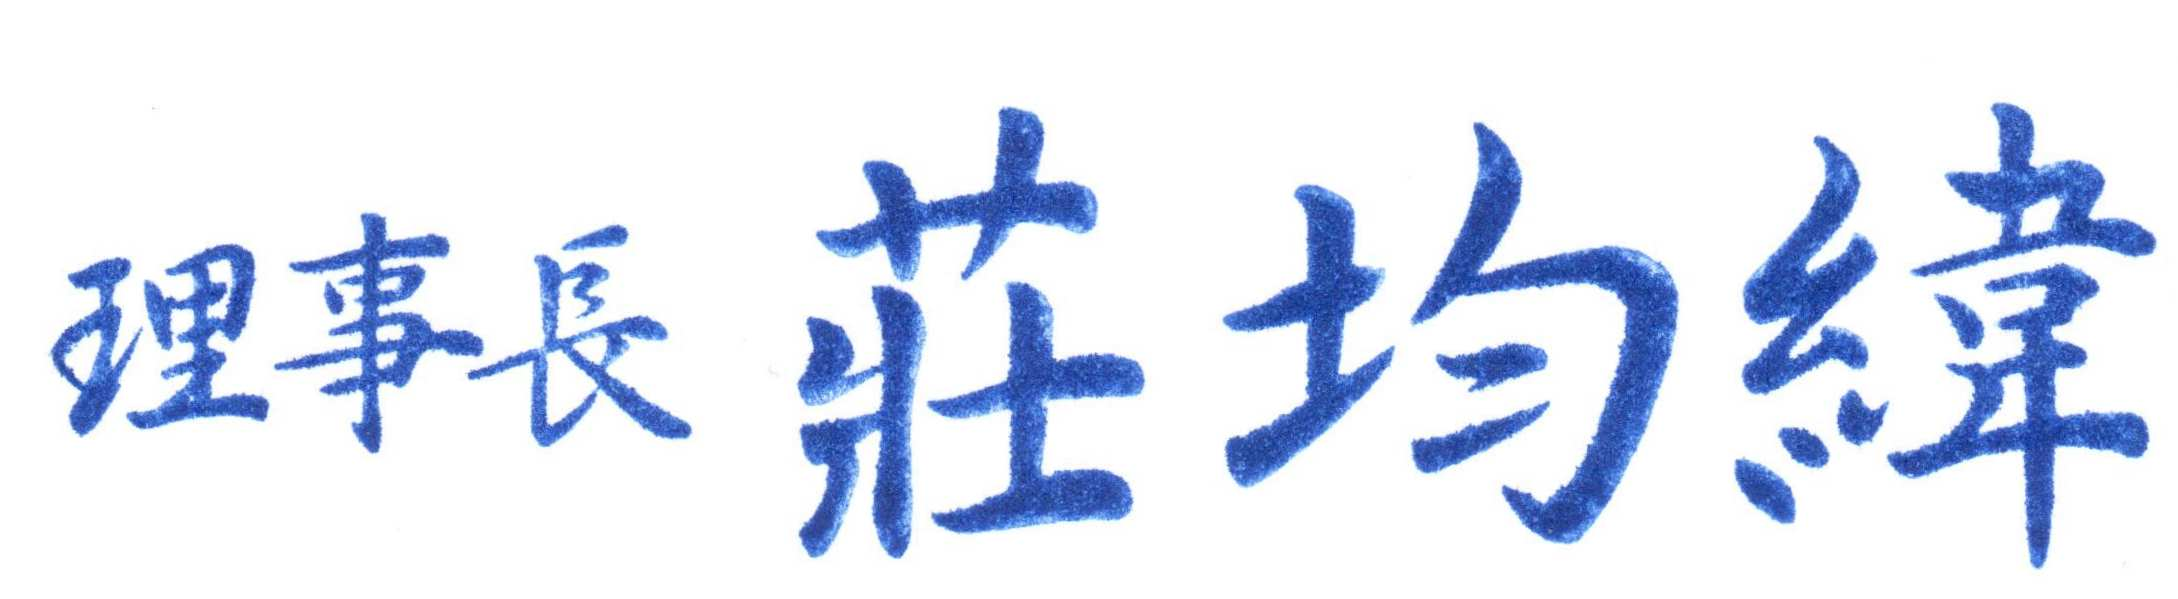 理事長 莊均緯